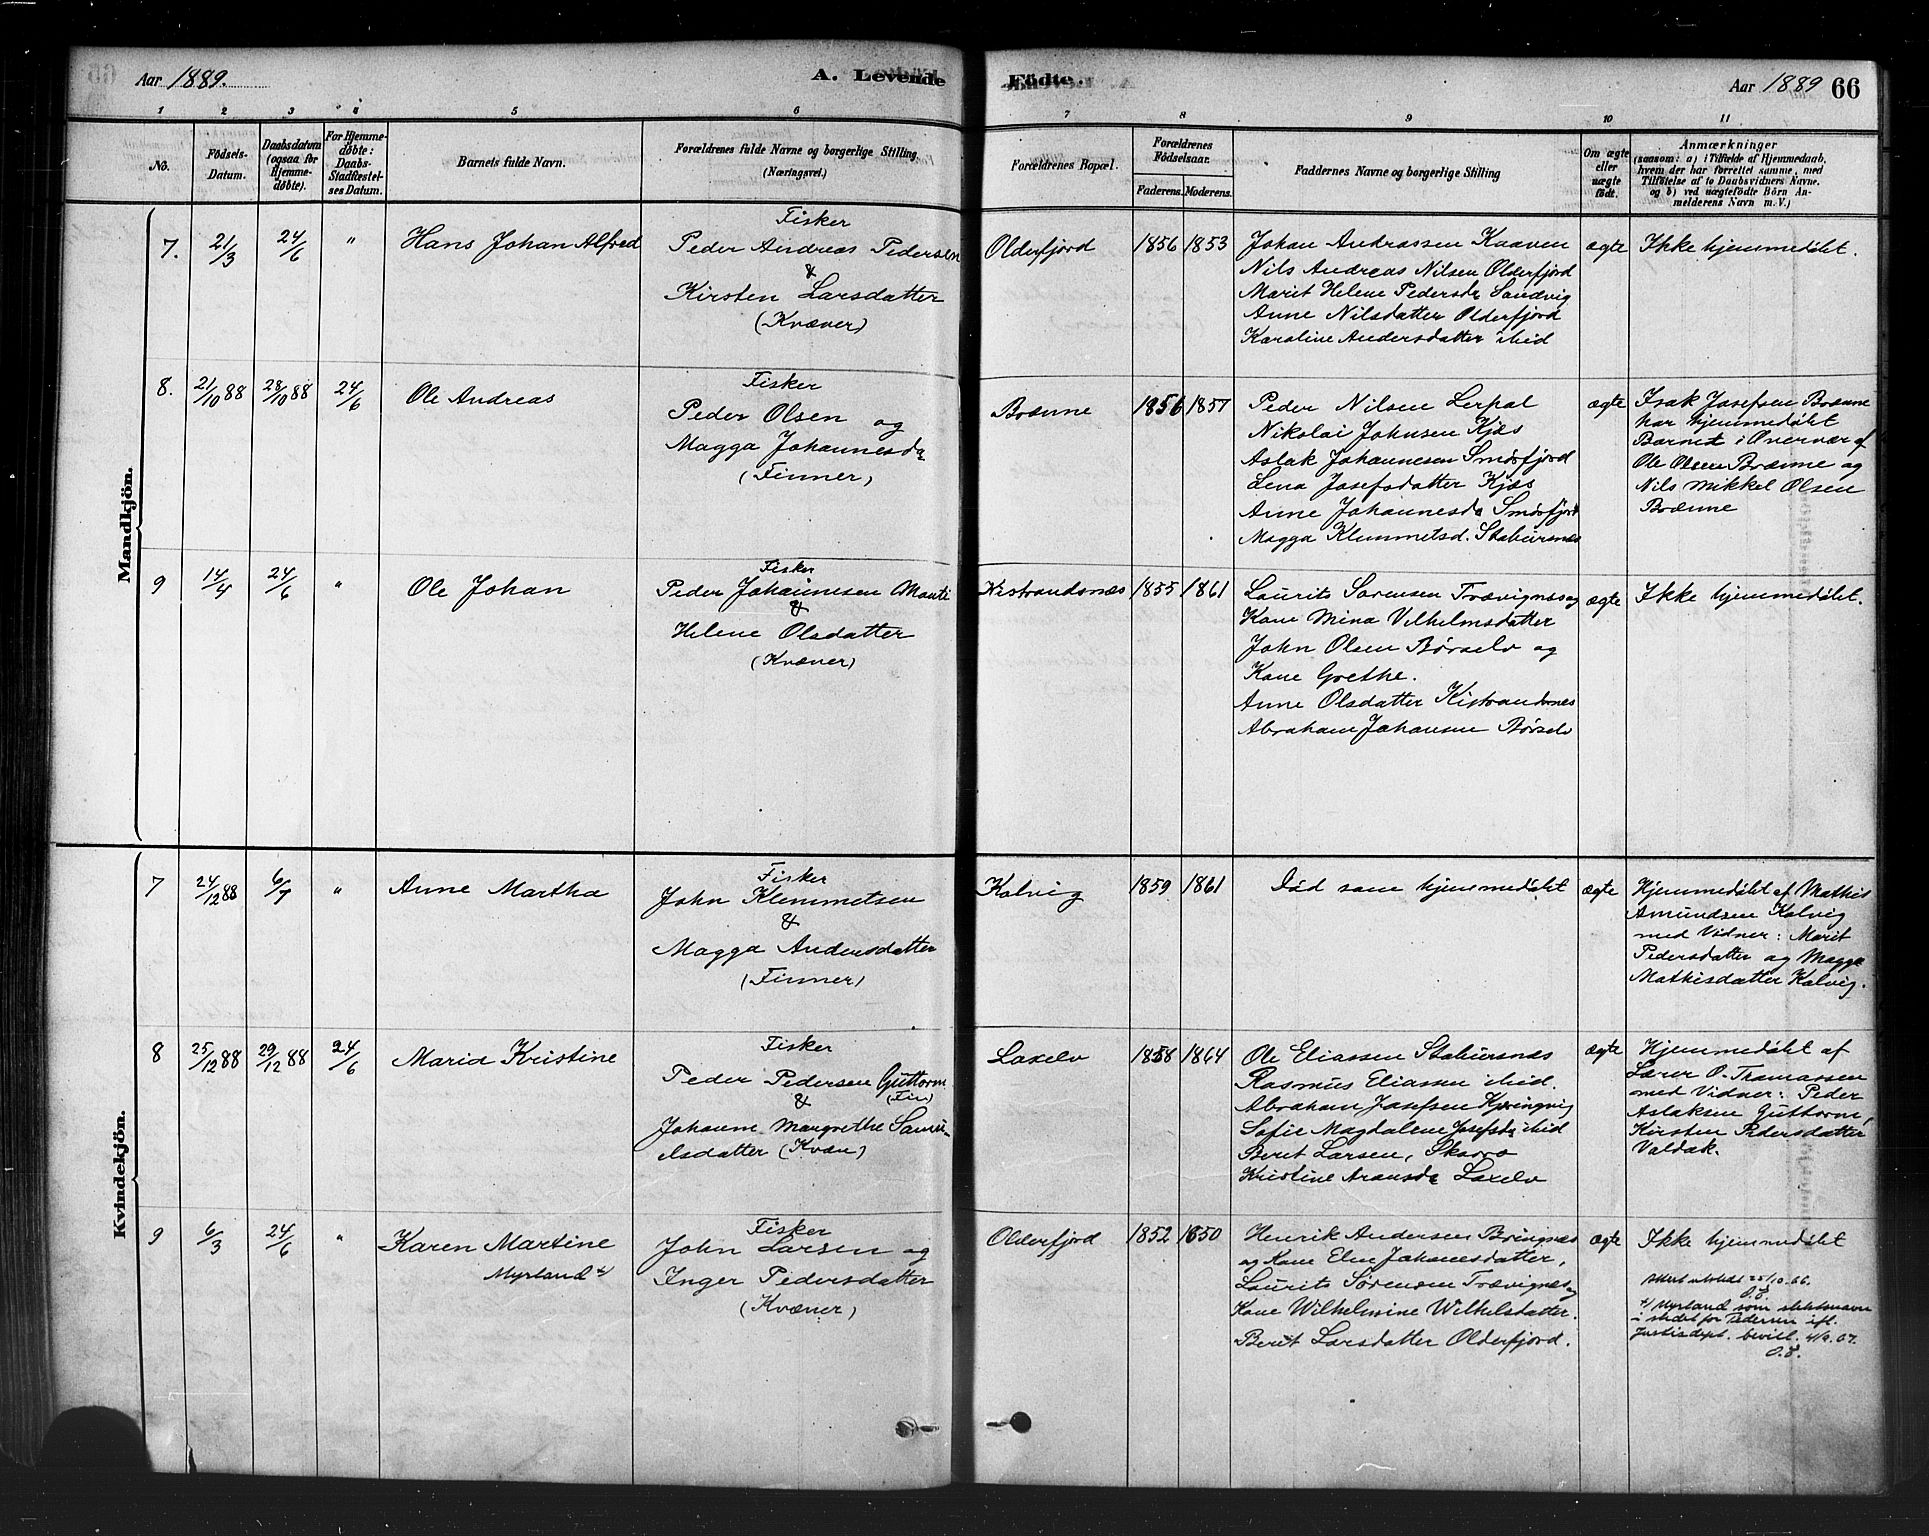 Aar 1889. A. Levende Födte. Aar 1889 66
1 2 3 4 5 6 7 8 9 10 11
No. Födsels-Datum. Daabsdatum (ogsaa for Hjemmedöbte). For Hjemmedöbte: Daabs-Stadfæstelses Datum. Barnets fulde Navn. Forældrenes fulde Navne og borgerlige Stilling. (Næringsvei.) Forældrenes Bopæl. Forældrenes Födselsaar. Faderens. Moderens. Faddernes Navne og borgerlige Stilling Om ægte eller uægte födt. Anmærkninger
(saasom: a) i Tilfælde af Hjemmedaab, hvem der har forrettet samme, med Tilföielse af to Daabsvidners Navne. og b) ved uægtefödte Börn Anmelderens Navn m. V.)
Mandkjön.
7. 21/3 24/6 " Hans Johan Alfred
Fisker
Peder Andreas Pedersen
&
Kirsten Larsdatter
(Kvæner)
Olderfjord 1856 1853
Johan Andrassen Kaaven
Nils Andreas Nilsen Olderfjord
Marit Helene Pedersdr Sandvig
Anne Nilsdatter Olderfjord
Karoline Andersdatter ibid
ægte Ikke hjemmedøbt.
8. 21/10 88 28/10 88 24/6 Ole Andreas
Fisker
Peder Olsen og
Magga Johannesda
(Finner)
Brænne 1856 1857
Peder Nilsen Lerpal
Nikolai Johnsen Kjæs
Aslak Johannesen Smörfjord
Lena Josefsdatter Kjæs
Anne Johannesda Smörfjord
Magga Klemmetsd. Stabursnæs
ægte Isak Josefsen Brænne
har hjemmedøbt
Barnet i Overvær af
Ole Olsen Brænne og
Nils Mikkel Olsen
Brænne
9 14/4 24/6 " Ole Johan
Fisker
Peder Johannesen Manti
&
Helene Olsdatter
(Kvæner)
Kistrandsnæs 1855 1861
Laurits Sørensen Trævignæs og
Kone Mina Vilhelmsdatter
John Olsen Børselv og
Kone Grethe.
Anne Olsdatter Kistrandsnes
Abraham Johansen Børselv
ægte Ikke hjemmedøbt.
Kvindekjön.
7 24/12 88 6/7 " Anne Martha
Fisker
John Klemmetsen
&
Magga Andersdatter
(Finner)
Kolvig 1859 1861 Død som hjemmedøbt ægte
Hjemmedøbt af Mathis
Amundsen Kolvig
med Vidner: Marit
Pedersdatter og Magga
Mathisdatter Kolvig.
8 25/12 88 29/12 88 24/6 Maria Kristine
Fisker
Peder Pedersen Guttorm
(Fin)
&
Johanne Margrethe Samu-
elsdatter (Kvæn)
Laxelv 1858 1864
Ole Eliassen Stabursnæs
Rasmus Eliassen ibid.
Abraham Josefsen Kjeringvig
Sofie Magdalene Josefsdr ibid
Berit Larsen,
Kristine Aronsda Laxelv
ægte Hjemmedøbt af
Lærer O. Thomassen
med Vidner: Peder
Aslaksen Guttorm,
Kirsten Pedersdatter
Valdak.
9 6/3 24/6 " Karen Martine
Myrland
Fisker
John Larsen og
Inger Pedersdatter
(Kvæner)
Olderfjord 1852 1850
Henrik Andersen Bringnæs
og Kone Elen Johannesdatter,
Laurits Sørensen Trævignæs og
Kone Wilhelmine Wilhelsdatter.
Berit Larsdatter Olderfjord.
ægte Ikke hjemmedøbt
Attest utstedt 25/10.66.
Myrland som slektsnavn
i stedet for Pedersen ifl.
Justisdept. bevill. 4/9.07.